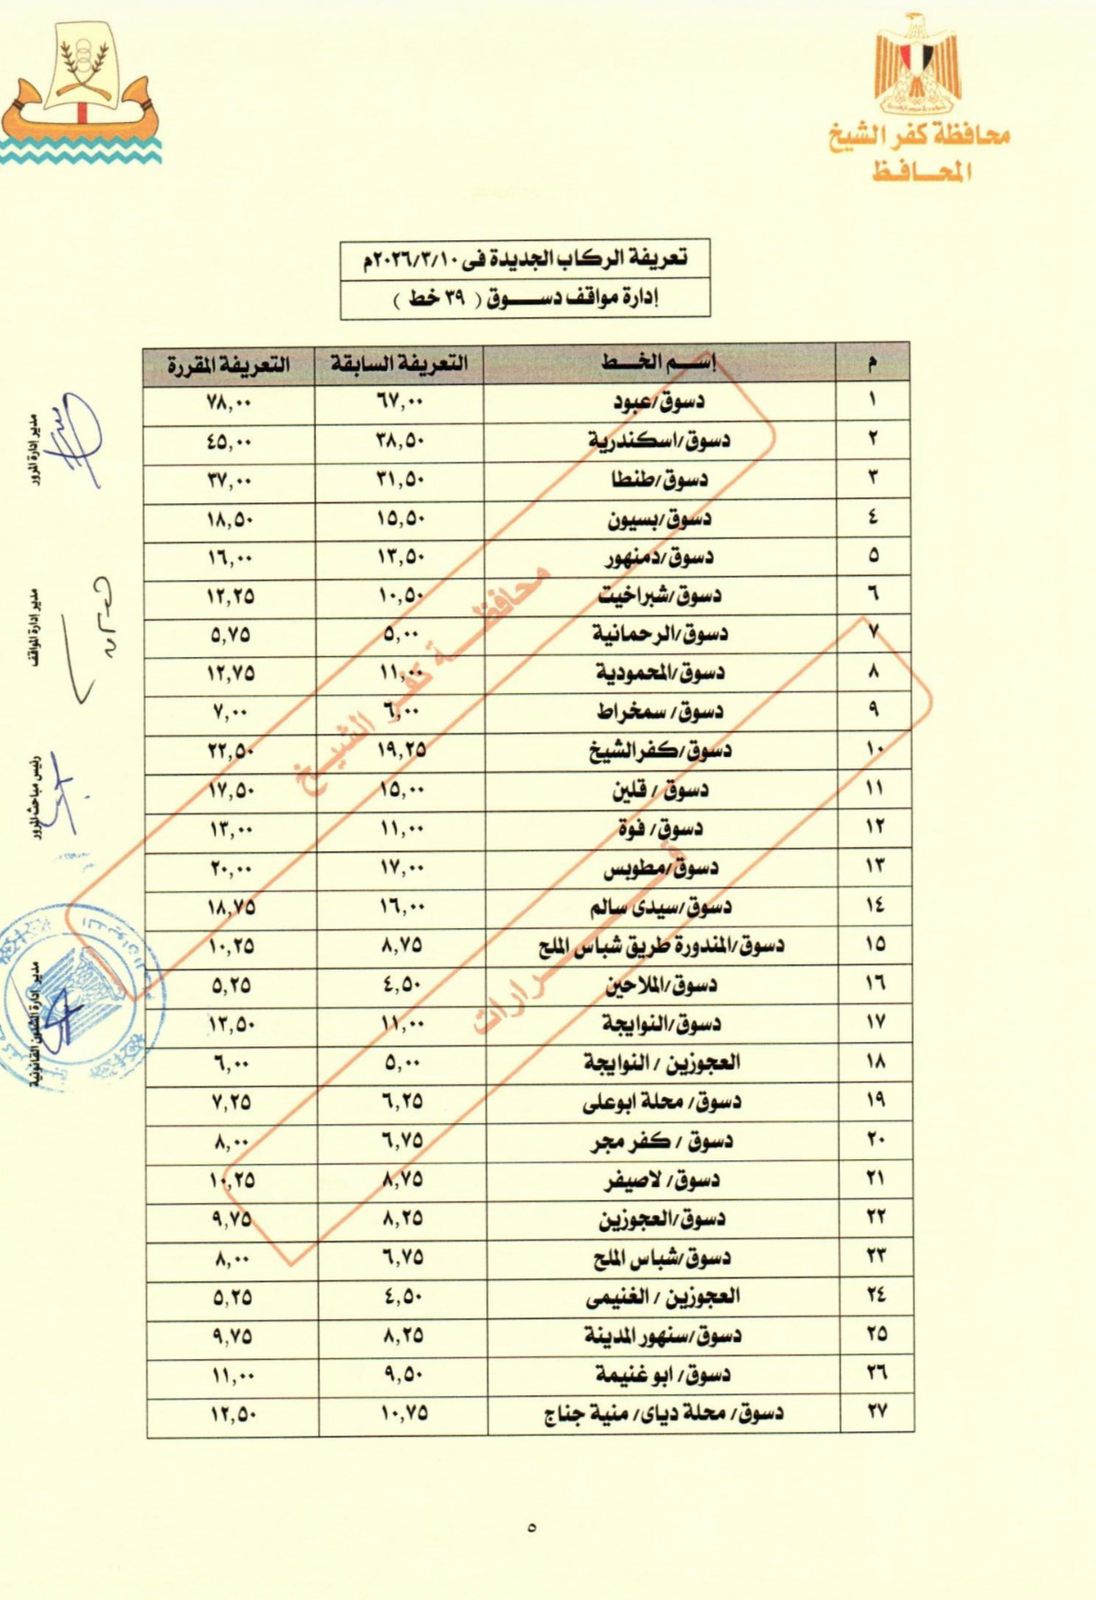 محافظة كفر الشيخ
المحافظ
تعريفة الركاب الجديدة فى ٢٠٢٦/٣/١٠م
إدارة مواقف دسوق ( ٣٩ خط )
م إسم الخط التعريفة السابقة التعريفة المقررة
١ دسوق/عبود ٦٧,٠٠ ٧٨,٠٠
٢ دسوق/اسكندرية ٣٨,٥٠ ٤٥,٠٠
٣ دسوق/طنطا ٣١,٥٠ ٣٧,٠٠
٤ دسوق/بسيون ١٥,٥٠ ١٨,٥٠
٥ دسوق/دمنهور ١٣,٥٠ ١٦,٠٠
٦ دسوق/شبراخيت ١٠,٥٠ ١٢,٢٥
٧ دسوق/الرحمانية ٥,٠٠ ٥,٧٥
٨ دسوق/المحمودية ١١,٠٠ ١٢,٧٥
٩ دسوق/ سمخراط ٦,٠٠ ٧,٠٠
١٠ دسوق/كفرالشيخ ١٩,٢٥ ٢٢,٥٠
١١ دسوق / قلين ١٥,٠٠ ١٧,٥٠
١٢ دسوق/ فوة ١١,٠٠ ١٣,٠٠
١٣ دسوق/مطوبس ١٧,٠٠ ٢٠,٠٠
١٤ دسوق/سيدى سالم ١٦,٠٠ ١٨,٧٥
١٥ دسوق/المندورة طريق شباس الملح ٨,٧٥ ١٠,٢٥
١٦ دسوق/الملاحين ٤,٥٠ ٥,٢٥
١٧ دسوق/النوايجة ١١,٠٠ ١٣,٥٠
١٨ العجوزين / النوايجة ٥,٠٠ ٦,٠٠
١٩ دسوق/ محلة ابوعلى ٦,٢٥ ٧,٢٥
٢٠ دسوق / كفر مجر ٦,٧٥ ٨,٠٠
٢١ دسوق/ لاصيفر ٨,٧٥ ١٠,٢٥
٢٢ دسوق/العجوزين ٨,٢٥ ٩,٧٥
٢٣ دسوق/شباس الملح ٦,٧٥ ٨,٠٠
٢٤ العجوزين / الغنيمى ٤,٥٠ ٥,٢٥
٢٥ دسوق/سنهور المدينة ٨,٢٥ ٩,٧٥
٢٦ دسوق/ ابو غنيمة ٩,٥٠ ١١,٠٠
٢٧ دسوق/ محلة دياى/ منية جناج ١٠,٧٥ ١٢,٥٠
محافظة كفر الشيخ
قرارات
مدير إدارة المرور
مدير إدارة المواقف
رئيس مباحث المرور
مدير إدارة الشئون القانونية
٥